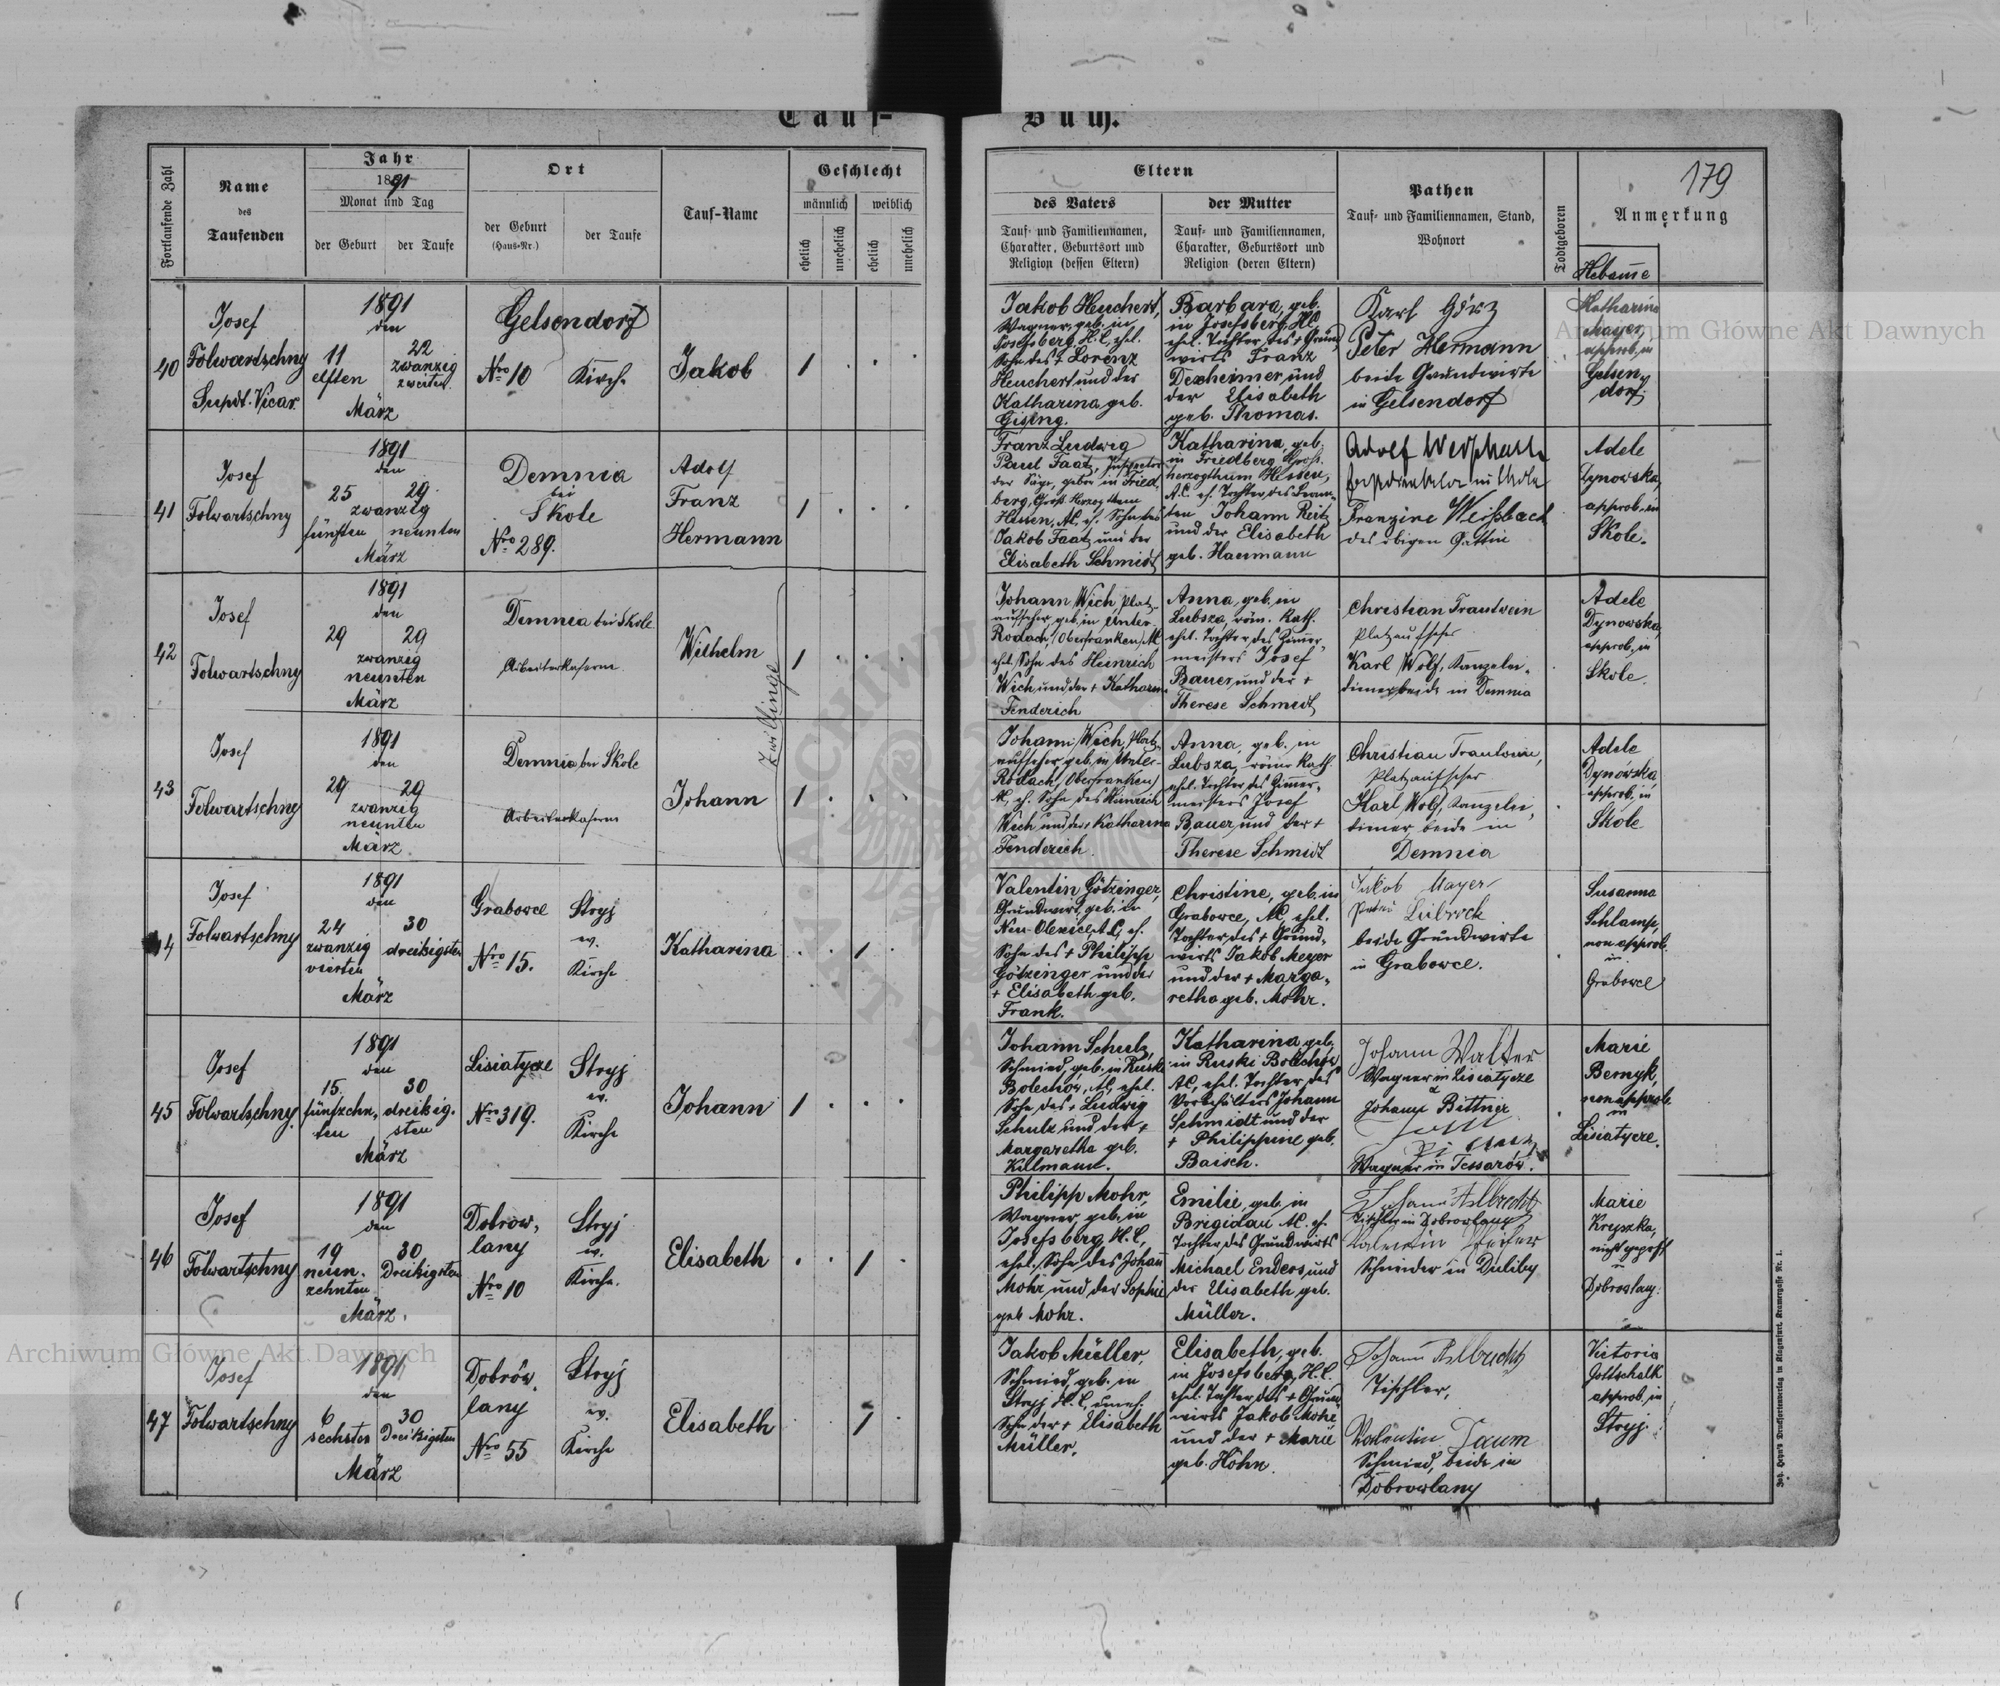 Tauf-Buch.
179
Fortlaufende Zahl
Name
des
Taufenden
Jahr
1891
Monat und Tag
der Geburt
der Taufe
Ort
der Geburt
(Haus-Nr.)
der Taufe
Tauf-Name
Geschlecht
männlich
weiblich
ehelich
unehelich
ehelich
unehelich
Eltern
des Vaters
Tauf- und Familiennamen,
Charakter, Geburtsort und
Religion (dessen Eltern)
der Mutter
Tauf- und Familiennamen,
Charakter, Geburtsort und
Religion (deren Eltern)
Pathen
Tauf- und Familiennamen, Stand,
Wohnort
Todtgeboren
Anmerkung
Hebame
40
Josef
Folwartschny
Supdt. Vicar
1891
den
11
elften
22
zwanzig
zweiten
März
Gelsendorf
Nro 10
Kirche
Jakob
1
Jakob Heuchert,
Wagner, geb. in
Josefsberg, H.C, ehel.
Sohn des + Lorenz
Heuchert und der
Katharina, geb.
Gising.
Barbara, geb.
in Josefsberg, H.C.
ehel. Tochter des + Grund
wirts Franz
Dexheimer und
der Elisabeth
geb. Thomas.
Karl Görz
Peter Hermann
beide Grundwirte
in Gelsendorf
Katharina
Mayer,
approb. in
Gelsen
dorf.
41
Josef
Folwartschny
1891
den
25
29
zwanzig
fünften
neunten
März
Demnia
bei
Skole
Nro 289.
Adolf
Franz
Hermann
1
Franz Ludwig
Paul Faat, Inspector
der Säge, gebor. in Fried-
berg, Groß Herzogthum
Hessen, AC, eh. Sohn des
Jakob Faat und der
Elisabeth Schmidt
Katharina, geb.
in Friedberg, Groß-
herzogthum Hessen,
A.C. eh. Tochter des
Johann Reitz
und der Elisabeth
geb. Haermann
Adolf
Franzine Weißbach
des obigen Gattin
Adele
Dynowska,
approb. in
Skole.
42
Josef
Folwartschny
1891
den
29
29
zwanzig
neunten
März
Demnia bei Skole
Arbeiterkaserne
Wilhelm
Zwillinge
1
Johann Wich, Platz-
aufseher geb. in Unter
Rodach, (Oberfranken) AC
ehel. Sohn des Heinrich
Wich und der + Katharina
Fenderich
Anna, geb. in
Lubsza, röm. Kath.
ehel. Tochter des Zimmer-
meisters Josef
Bauer, und der +
Therese Schmidt
Christian Trautwein
Platzaufseher
Karl Wolf, Kanzelei-
diener beide in Demnia
Adele
Dynowska,
approb. in
Skole.
43
Josef
Folwartschny
1891
den
29
29
zwanzig
neunten
März
Demnia, bei Skole
Arbeiterkaserne
Johann
1
Johann Wich, Platz-
aufseher geb. in Unter-
Rodach, (Oberfranken)
AC, eh. Sohn des Heinrich
Wich und der + Katharina
Fenderich.
Anna, geb. in
Lubsza, römi. Kath.
ehel. Tochter des Zimmer-
meisters Josef
Bauer, und der +
Therese Schmidt
Christian Trautwein,
Platzaufseher
Karl Wolf, Kanzelei-
diener, beide in
Demnia
Adele
Dynowska,
approb. in
Skole
44
Josef
Folwartschny
1891
den
24
zwanzig
vierten
30
dreißigsten
März
Grabowce
Nro 15.
Stryj
ev.
Kirche
Katharina
1
Valentin Götzinger,
Grundwirt, geb. in
Neu-Olexice, AC, eh.
Sohn des + Philipp
Götzinger und der
+ Elisabeth geb.
Frank.
Christine, geb. in
Grabowce, AC, ehel.
Tochter des + Grund-
wirts Jakob Meyer
und der + Marga-
retha geb. Mohr.
Jakob Mayer
beide Grundwirte
in Grabowce.
Susanna
Schlamp,
non approb.
in
Grabowce
45
Josef
Folwartschny
1891
den
15.
fünfzehn-
ten
30
dreißig.
sten
März
Lisiatycze
Nro 319.
Stryj
ev.
Kirche
Johann
1
Johann Schulz,
Schmied, geb. in Ruski
Bolechów, AC, ehel.
Sohn des + Ludwig
Schulz und der +
Margaretha geb.
Killmann.
Katharina geb.
in Ruski Bolechów
AC, ehel. Tochter des
Vorbehälters Johann
Schmidt und der
+ Philippine geb.
Baisch.
Johann Walter
Wagner in Lisiatycze
Johann Bittner
Wagner in Tessarów.
Marie
Bernyk,
non approb.
in
Lisiatycze.
46
Josef
Folwartschny
1891
den
19
neun-
zehnten
30
Dreißigsten
März.
Dobrow-
lany
Nro 10
Stryj
ev.
Kirche.
Elisabeth
1
Philipp Mohr,
Wagner, geb. in
Josefsberg, H.C,
ehel. Sohn des Johann
Mohr und der Sophie
geb. Mohr.
Emilie, geb. in
Brigidau AC. eh.
Tochter des Grundwirts
Michael Enders und
der Elisabeth geb.
Müller.
Johann Albrecht
Tischler in Dobrowlany
Schneider in Duliby
Marie
nicht geprüft
in
Dobrowlany.
47
Josef
Folwartschny
1891
den
6
sechsten
30
Dreißigsten
März
Dobrów.
lany
Nro 55
Stryj
ev.
Kirche
Elisabeth
1
Jakob Müller,
Schmied, geb. in
Stryj H.C, uneh.
Sohn der + Elisabeth
Müller.
Elisabeth, geb.
in Josefsberg, H.C.
ehel. Tochter des + Grund
wirts Jakob Mohr
und der + Marie
geb. Höhn.
Johann Albrecht
Tischler,
Valentin Daum
Schmied, beide in
Dobrowlany
Victoria
Gottschalk
approb. in
Stryj.
Archiwum Główne Akt Dawnych
Archiwum Główne Akt Dawnych